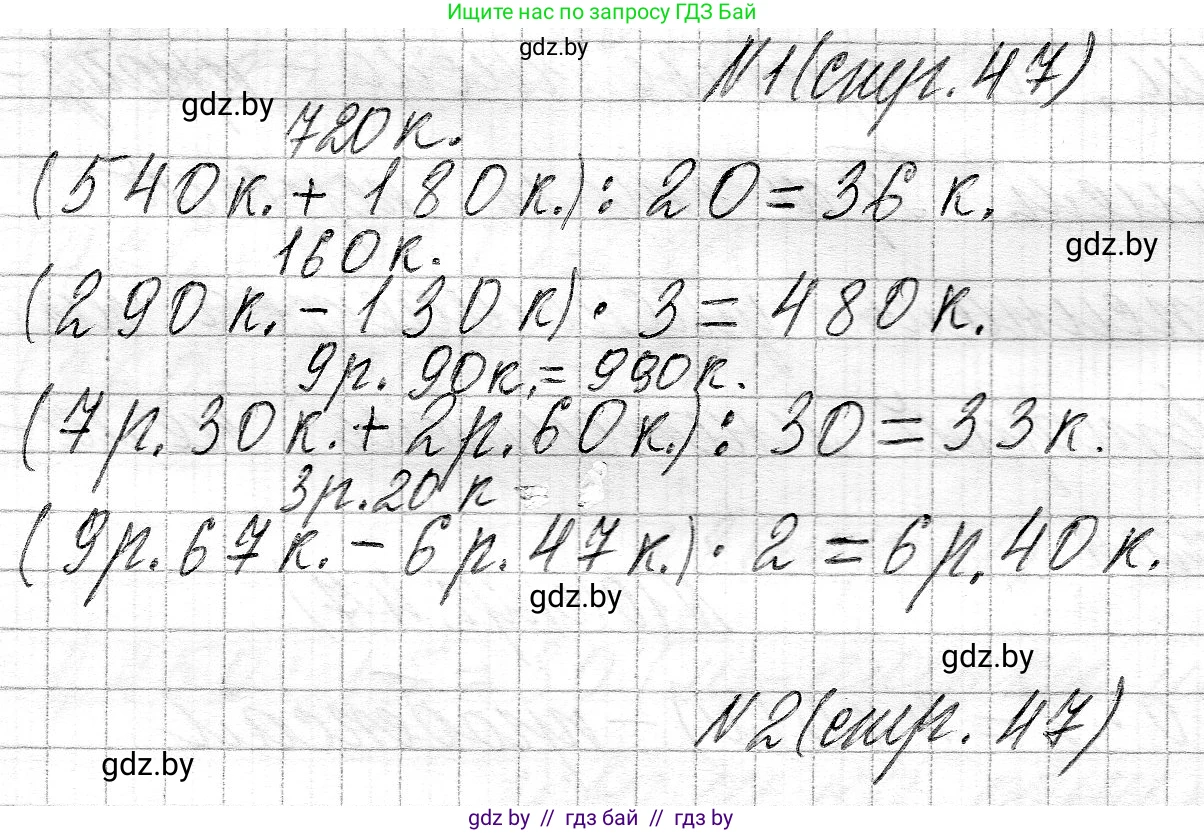 Ищите нас по запросу ГДЗ Бай
gdz.by
№1 (стр. 47)
gdz.by
720 к.
(540 к. + 180 к.) : 20 = 36 к.
160 к.
gdz.by
(290 к. - 130 к) · 3 = 480 к.
9р. 90к. = 990к.
(7р. 30к. + 2р. 60к.) : 30 = 33к.
3р. 20 к =
(9р. 67к. - 6р. 47к.) · 2 = 6р. 40к.
gdz.by
gdz.by
№2 (стр. 47)
gdz.by
gdz.by // гдз бай // гдз by